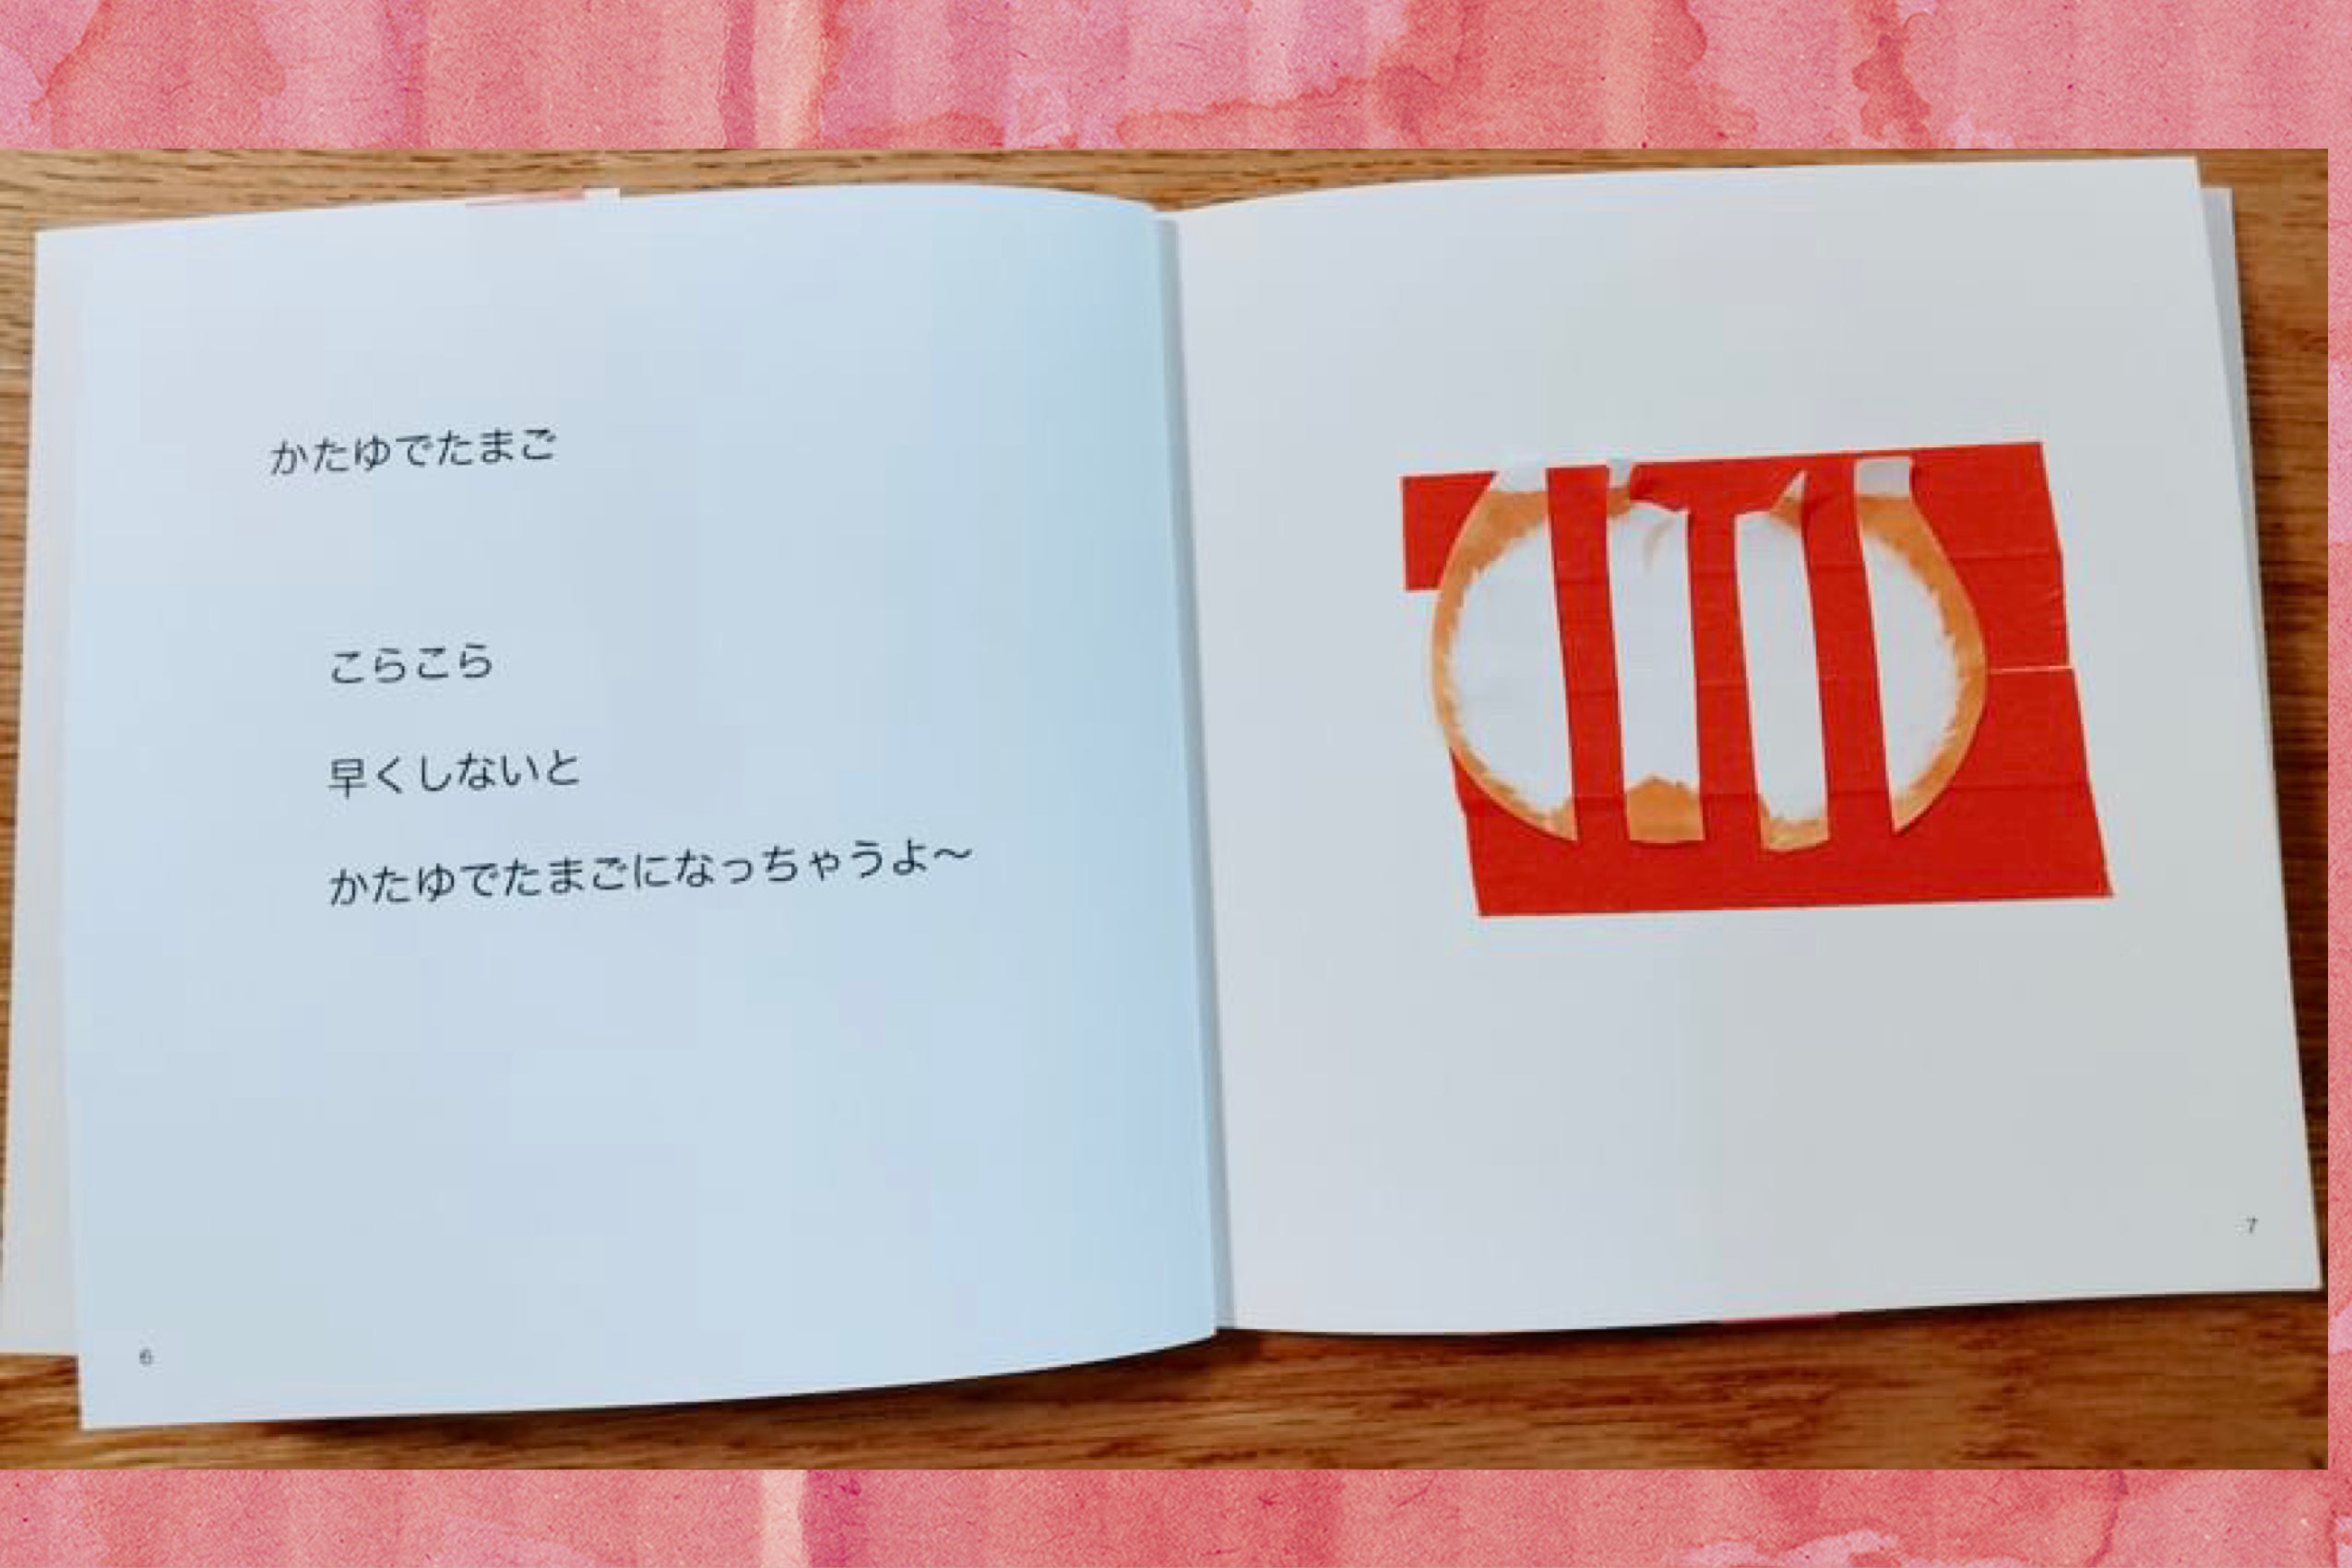 かたゆでたまご
こらこら
早くしないと
かたゆでたまごになっちゃうよ〜
6
7